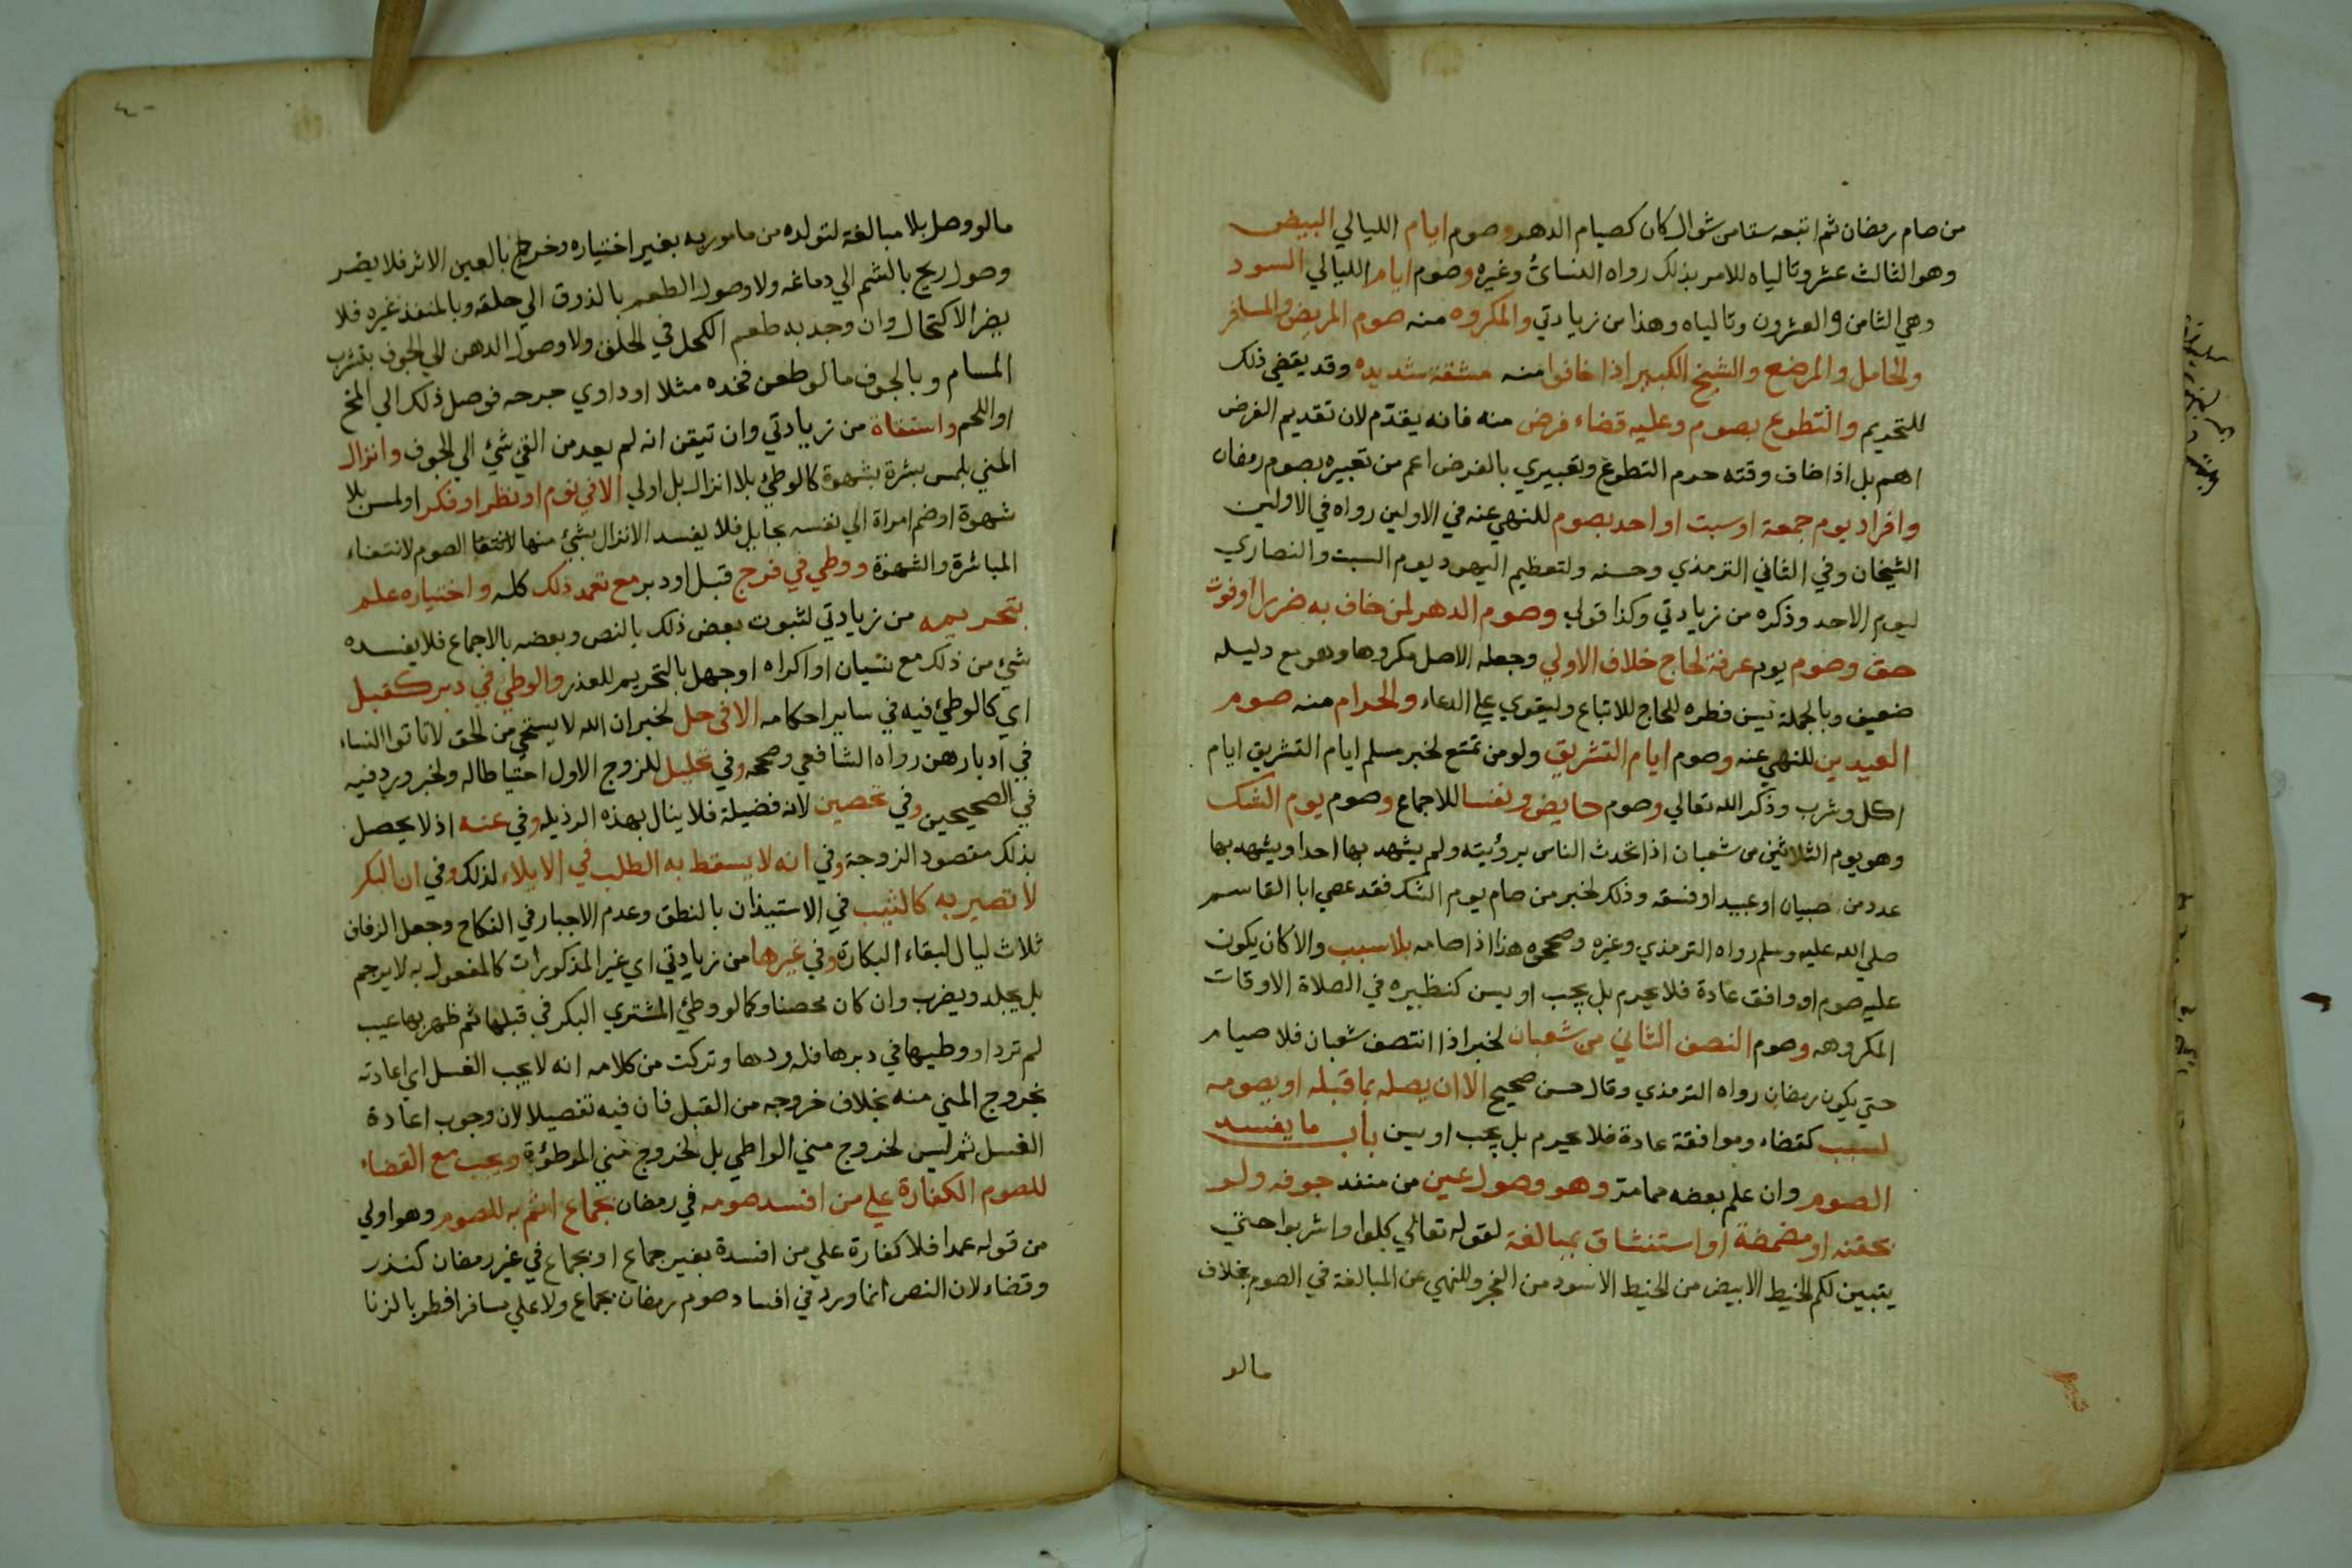 من صام رمضان ثم اتبعه ستا من شوال كان كصيام الدهر وصوم ايام الليالي البيض
وهو الثالث عشر وتالياه للامر بذلك رواه النسائ وغيره وصوم ايام الليالي السود
وهي الثامن والعشرون وتالياه وهذا من زيادتي والمكروه منه صوم المريض والمسافر
والحامل والمرضع والشيخ الكبير اذا خافوا منه مشقة شديده وقد يقضي ذلك
للتحريم والتطوع بصوم وعليه قضاء فرض منه فانه يقدم لان تقديم الفرض
اهم بل اذا ضاف وقته حرم التطوع وتعبيري بالفرض اعم من تعبيره بصوم رمضان
وافراد يوم جمعة او سبت او احد بصوم للنهي عنه في الاولين رواه في الاولين
الشيخان وفي الثاني الترمذي وحسنه ولتعظيم اليهود يوم السبت والنصاري
ليوم الاحد وذكره من زيادتي وكذا قولي وصوم الدهر لمن خاف به ضررا او فوت
حق وصوم يوم عرفة لحاج خلاف الاولي وجعله الاصل مكروها وهو مع دليله
ضعيف وبالجملة يسن فطره للحاج للاتباع وليقوي علي الدعاء والحرام منه صوم
العيدين للنهي عنه وصوم ايام التشريق ولو من تمتع لخبر مسلم ايام التشريق ايام
اكل وشرب وذكر الله تعالي وصوم حايض ونفسا للاجماع وصوم يوم الشك
وهو يوم الثلاثين من شعبان اذا تحدث الناس برؤيته ولم يشهد بها احد او يشهد بها
عدد من صبيان او عبيد او فسقه وذلك لخبر من صام يوم الشك فقد عصي ابا القاسم
صلي الله عليه وسلم رواه الترمذي وغيره وصححوه هذا اذا صامه بلا سبب والا كان يكون
عليه صوم او وافق عادة فلا يحرم بل يجب او يسن كنظيره في الصلاة الاوقات
المكروهه وصوم النصف الثاني من شعبان لخبر اذا انتصف شعبان فلا صيام
حتي يكون رمضان رواه الترمذي وقال حسن صحيح الا ان يصله بما قبله او يصومه
لسبب كقضاء وموافقة عادة فلا يحرم بل يجب او يسن باب ما يفسد
الصوم وان علم بعضه مما مر وهو وصول عين من منفذ جوفه ولو
بحقنه او مضمضة او استنشاق بمبالغة لقوله تعالي كلوا واشربوا حتي
يتبين لكم الخيط الابيض من الخيط الاسود من الفجر وللنهي عن المبالغة في الصوم بخلاف
مالو
مالو وصل بلا مبالغة لتولده من مامور به بغير اختياره وخرج بالعين الاثر فلا يضر
وصول ريح بالشم الي دماغه ولا وصول الطعم بالذوق الي حلقه وبالمنفذ غيره فلا
يضر الاكتحال وان وجد به طعم الكحل في الحلق ولا وصول الدهن الي الجوف بتشرب
المسام وبالجوف مالو طعن فخده مثلا او داوي جرحه فوصل ذلك الي المخ
او اللحم واستقاة من زيادتي وان تيقن انه لم يعد من القئ شئ الي الجوف وانزال
المني بلمس بشرة بشهوة كالوطئ بلا انزال بل اولي الا في نوم او نظر او فكر او لمس بلا
شهوة او ضم امراة الي نفسه بحايل فلا يفسد الانزال بشئ منها الصوم لانتفاء
المباشرة والشهوة ووطي في فرج قبل او دبر مع تعمد ذلك كله واختياره علم
بتحريمه من زيادتي لثبوت بعض ذلك بالنص وبعضه بالاجماع فلا يفسده
شئ من ذلك مع نسيان او اكراه او جهل بالتحريم للعذر والوطئ في دبر كقبل
اي كالوطئ فيه في ساير احكامه الا في حل لخبر ان الله لا يستحي من الحق لا تاتوا النساء
في ادبارهن رواه الشافعي وصححه وفي تحليل للزوج الاول احتياطا له ولخبر ورد فيه
في الصحيحين وفي تحصين لانه فضيلة فلا ينال بهذه الرذيله وفي عنه اذ لا يحصل
بذلك مقصود الزوجة وفي انه لا يسقط به الطلب في الايلاء لذلك وفي ان البكر
لا تصير به كالثيب في الاستيذان بالنطق وعدم الاجبار في النكاح وجعل الزفاف
ثلاث ليال لبقاء البكارة وفي غيرها من زيادتي اي غير المذكورات كالمفعول به لا يرجم
بل يجلد ويضرب وان كان محصنا وكما لو وطئ المشتري البكر في قبلها ثم ظهر بها عيب
لم ترد او وطيها في دبرها فله ردها وتركت من كلامه انه لا يجب الغسل اي اعادته
بخروج المني منه بخلاف خروجه من القبل فان فيه تفصيلا لان وجوب اعادة
الغسل ثم ليس لخروج مني الواطي بل لخروج مني الموطؤة ويجب مع القضاء
للصوم الكفارة علي من افسد صومه في رمضان بجماع اثم به للصوم وهو اولي
من قوله عمدا فلا كفارة علي من افسدة بغير جماع او بجماع في غير رمضان كنذر
وقضاء لان النص انما ورد في افساد صوم رمضان بجماع ولا علي مسافر افطر بالزنا